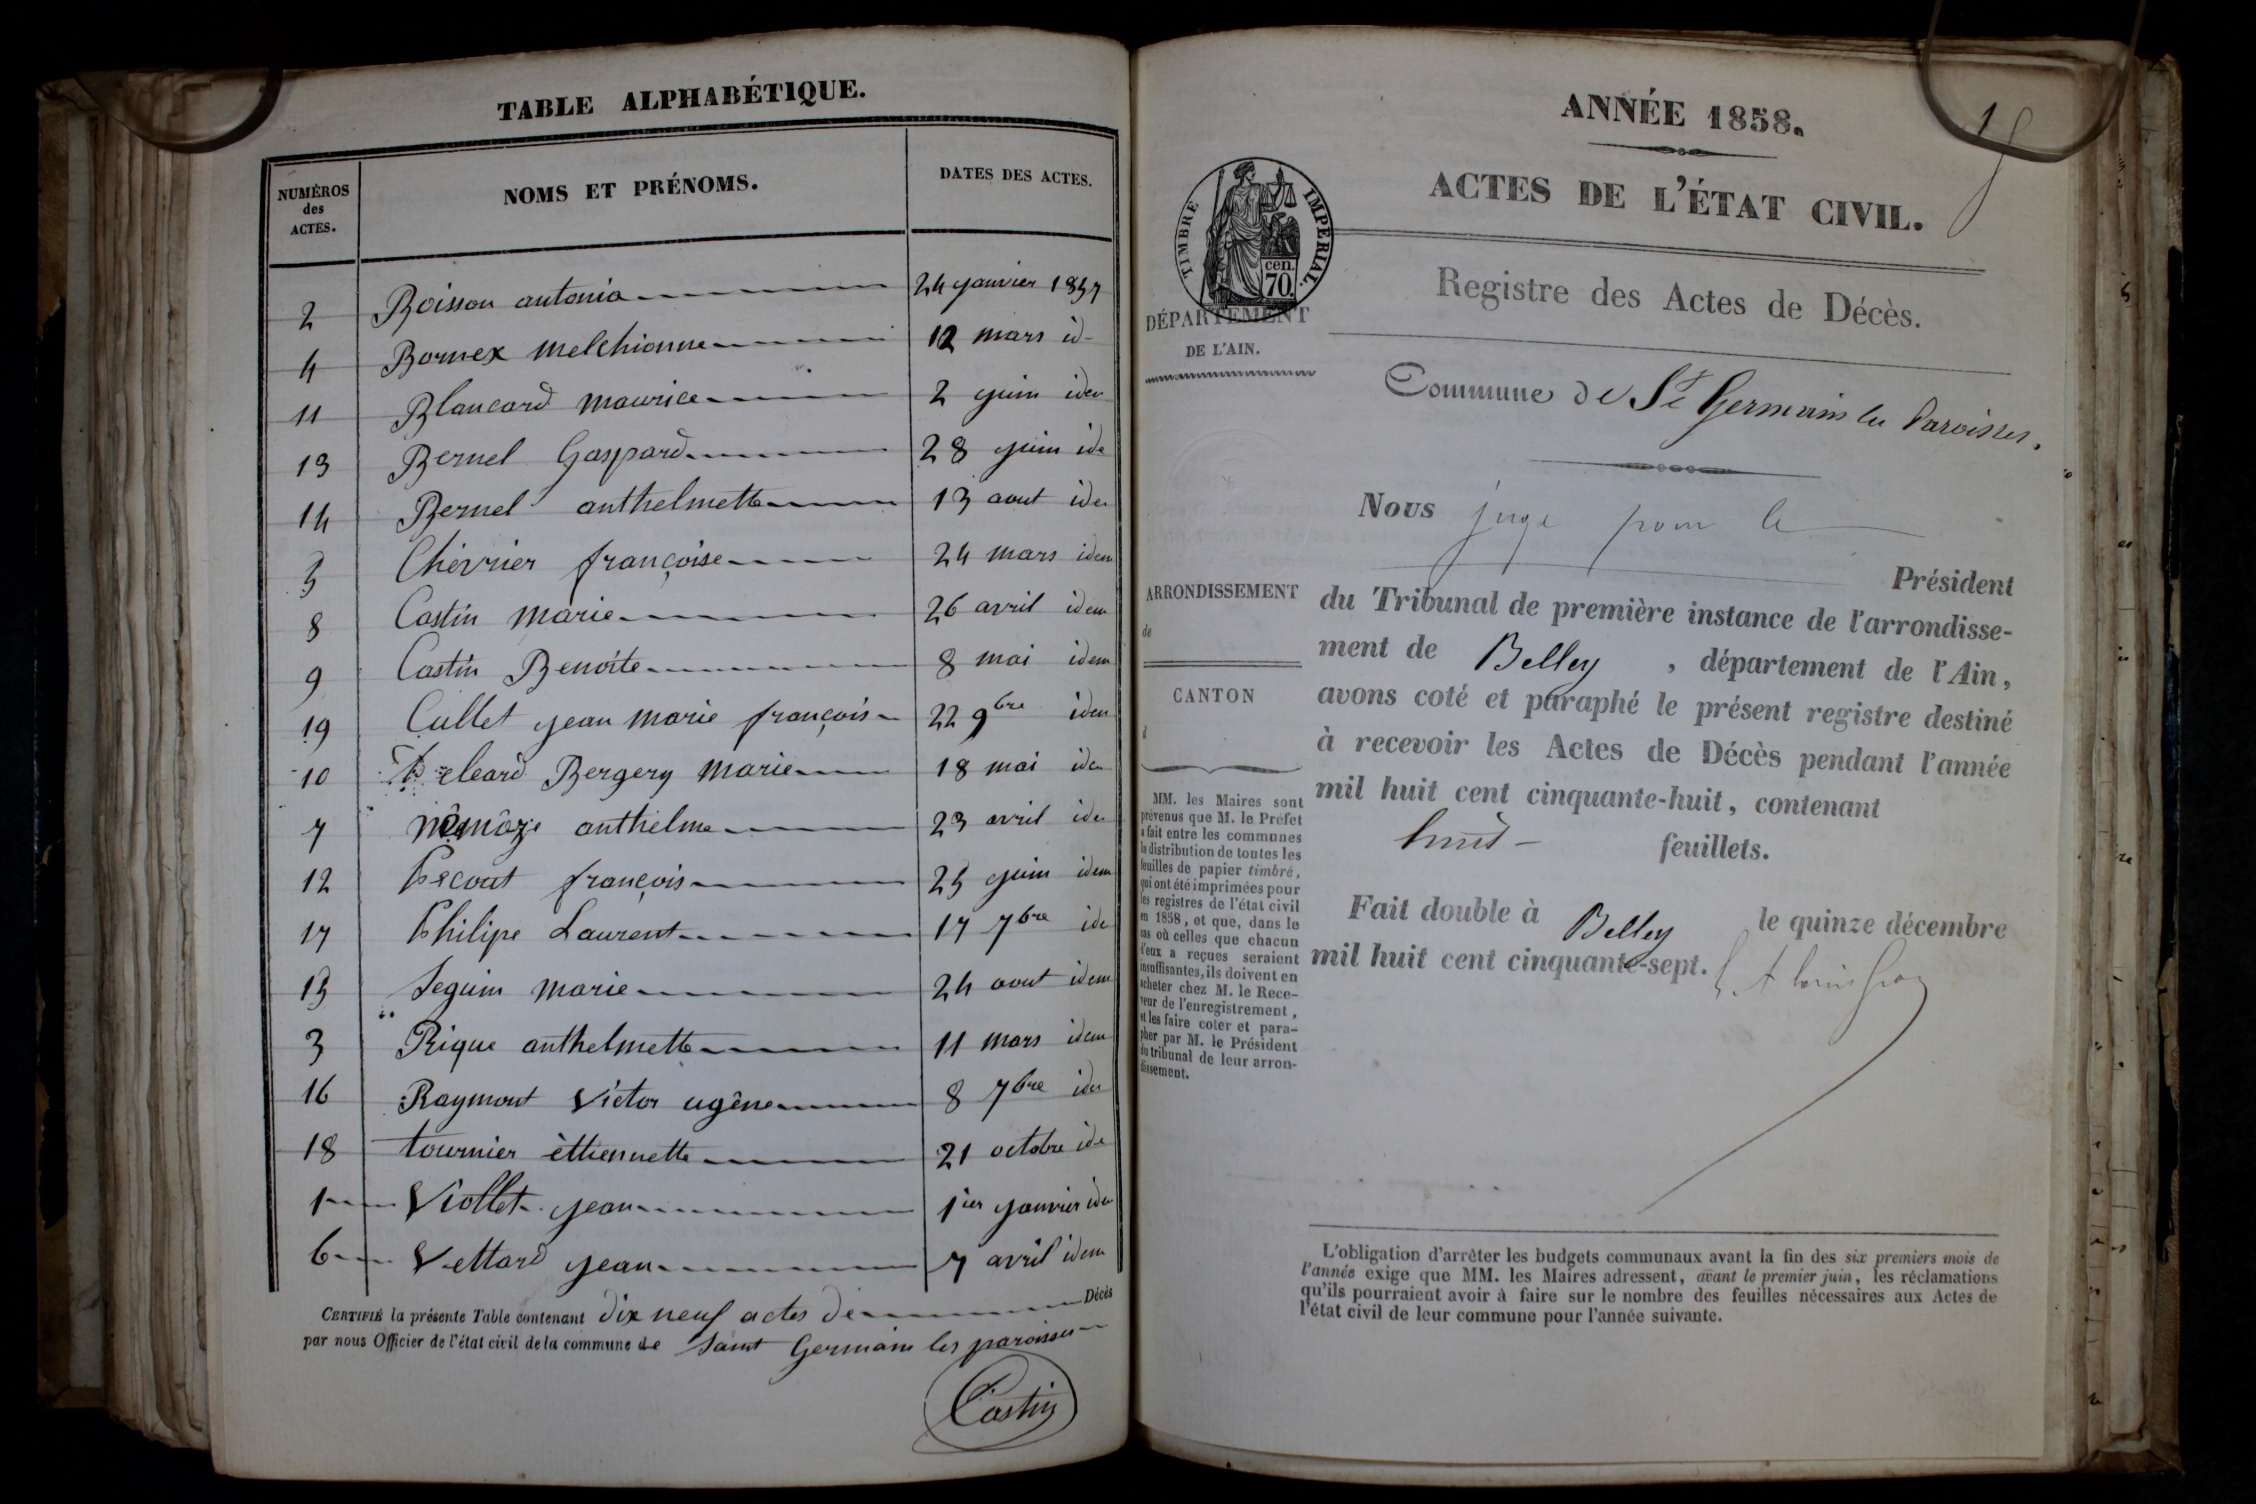 TABLE ALPHABÉTIQUE.
NUMÉROS des ACTES.
NOMS ET PRÉNOMS.
DATES DES ACTES.
2 Boisson antonia 24 janvier 1857
4 Bornex melchionne 12 mars id
11 Blancard maurice 2 juin iden
13 Bernel Gaspard 28 juin ide
14 Bernel anthelmette 13 aout iden
5 Chévrier françoise 24 mars idem
8 Castin marie 26 avril idem
9 Castin Benoite 8 mai idem
19 Cullet jean marie françois 22 9bre iden
10 Bergery marie 18 mai iden
7 anthelme 23 avril iden
12 Pecout françois 25 juin idem
17 Philipe Laurent 17 7bre ide
15 Seguin marie 24 aout idem
3 Rique anthelmette 11 mars idem
16 Raymont Victor ugêne 8 7bre iden
18 tournier èttiennette 21 octobre ide
1 Viollet jean 1ier janvier iden
6 Vettard jean 7 avril idem
CERTIFIÉ la présente Table contenant dix neuf actes de Décès
par nous Officier de l'état civil de la commune de Saint Germain les paroisses
Castin
ANNÉE 1858.
ACTES DE L'ÉTAT CIVIL.
TIMBRE IMPÉRIAL.
cen.
70.
DÉPARTEMENT
DE L'AIN.
Registre des Actes de Décès.
Commune de St Germain les Paroisses.
Nous juge pour le
Président
ARRONDISSEMENT
de
CANTON
d
du Tribunal de première instance de l'arrondisse-
ment de Belley, département de l'Ain,
avons coté et paraphé le présent registre destiné
à recevoir les Actes de Décès pendant l'année
mil huit cent cinquante-huit, contenant
huit feuillets.
Fait double à Belley le quinze décembre
mil huit cent cinquante-sept.
MM. les Maires sont
prévenus que M. le Préfet
a fait entre les communes
la distribution de toutes les
feuilles de papier timbré,
qui ont été imprimées pour
les registres de l'état civil
en 1858, et que, dans le
cas où celles que chacun
d'eux a reçues seraient
insuffisantes, ils doivent en
acheter chez M. le Rece-
veur de l'enregistrement,
et les faire coter et para-
pher par M. le Président
du tribunal de leur arron-
dissement.
L'obligation d'arrêter les budgets communaux avant la fin des six premiers mois de
l'année exige que MM. les Maires adressent, avant le premier juin, les réclamations
qu'ils pourraient avoir à faire sur le nombre des feuilles nécessaires aux Actes de
l'état civil de leur commune pour l'année suivante.